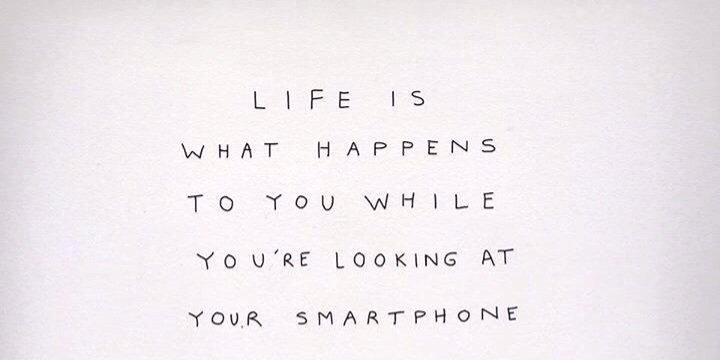 LIFE IS
WHAT HAPPENS
TO YOU WHILE
YOU'RE LOOKING AT
YOUR SMARTPHONE